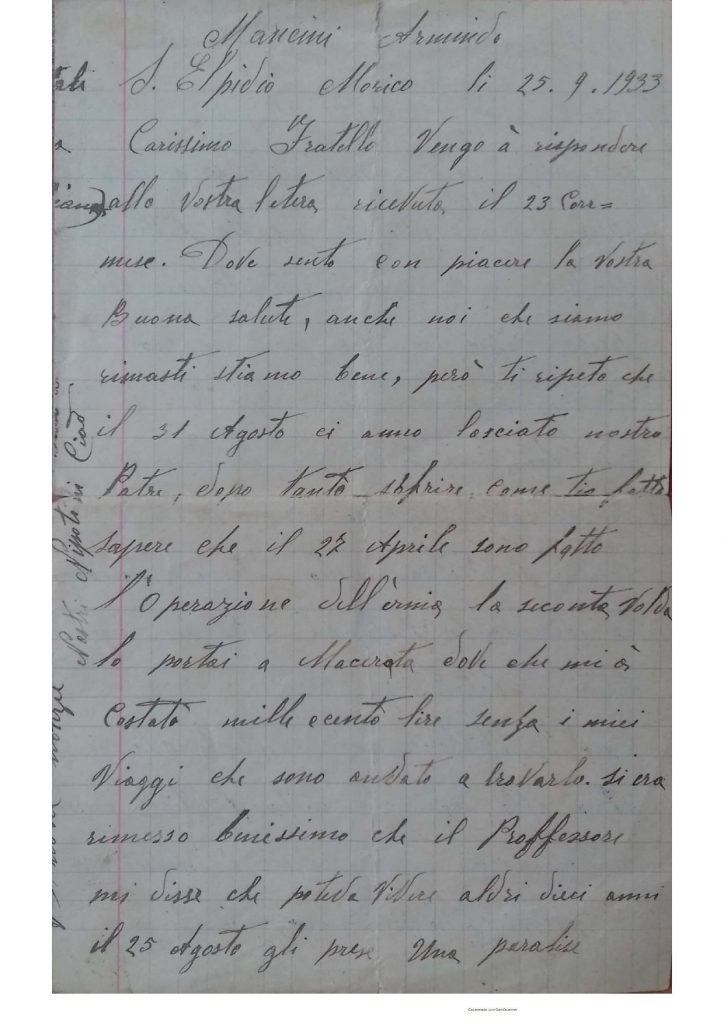 Mancini Armindo
S. Elpidio Morico li 25.9.1933
Carissimo Fratello Vengo à rispondere
alla Vostra letera riceVuta il 23 Corr=
mese. Dove sento con piacere la Vostra
Buona salute, anche noi che siamo
rimasti stiamo bene, però ti ripeto che
il 31 Agosto ci anno lasciato nostro
Patre, dopo tanto sofrire come tio fatto
sapere che il 27 Aprile sono fatto
l'Operazione dell'ernia la seconta Volda
lo portai a Macerata dove che mi à
Costato mille ecento lire senza i miei
Viaggi che sono andato a troVarlo. si era
rimesso benissimo che il Proffessore
mi disse che poteva ViVere aldri dieci anni
il 25 Agosto gli prese Una paralise
notizie Nostri Nipotini Ciao